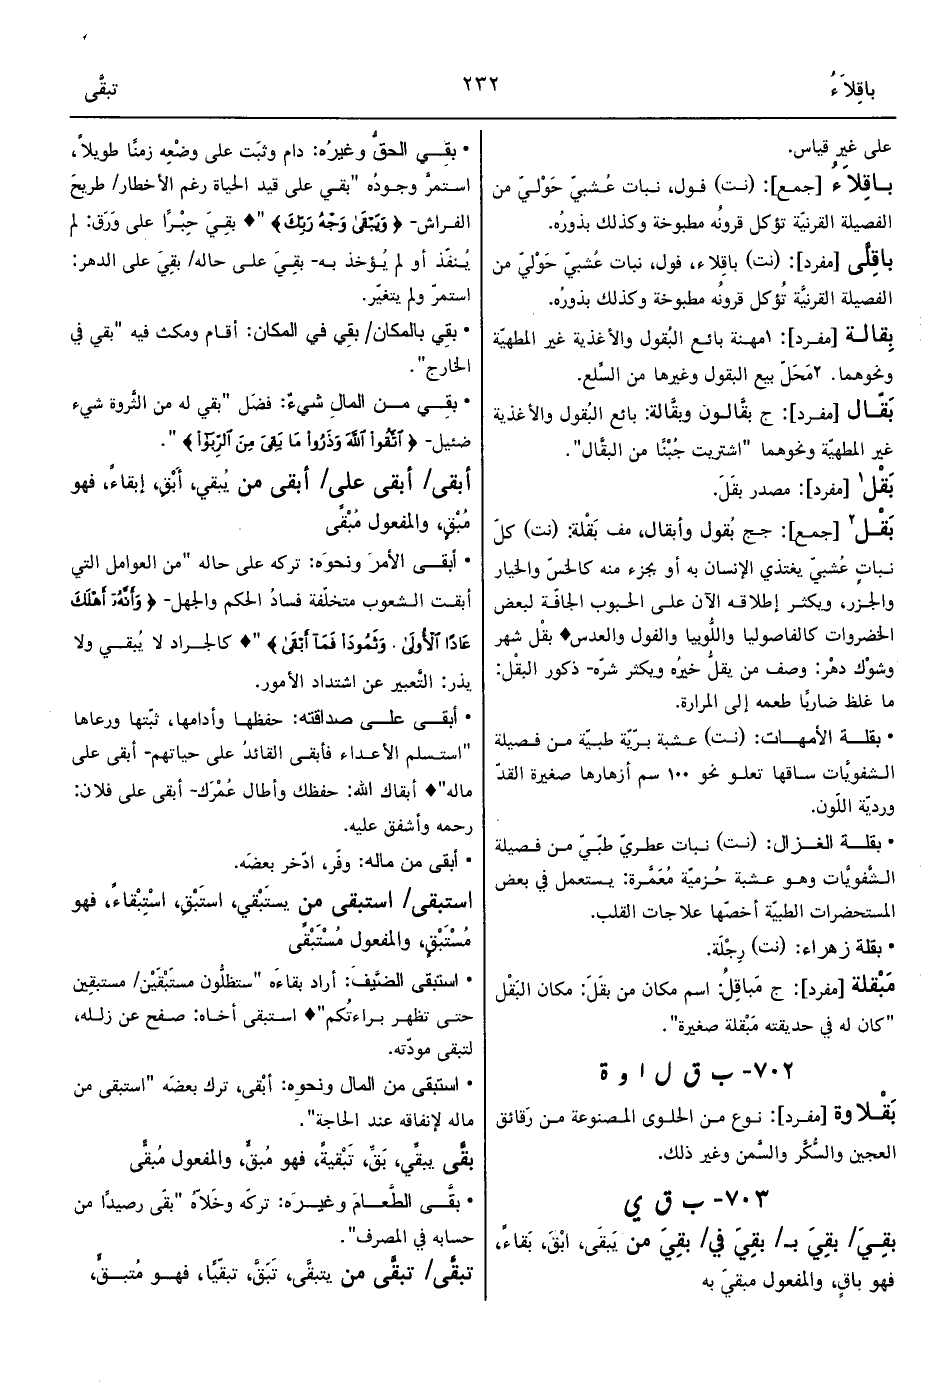 باقِلاَءُ
٢٣٢
تبقَّى
على غير قياس.
باقِلاَءُ [جمع]: (نت) فول، نبات عُشبيّ حَوْليّ من
الفصيلة القرنيّة تؤكل قرونُه مطبوخة وكذلك بذورُه.
باقِلَّى [مفرد]: (نت) باقِلاء، فول، نبات عُشبيّ حَوْليّ من
الفصيلة القرنيَّة تُؤكل قرونُه مطبوخة وكذلك بذورُه.
بِقالة [مفرد]: ١مهنة بائع البُقول والأغذية غير المطهيّة
ونحوهما. ٢مَحَلّ بيع البقول وغيرها من السِّلع.
بَقّال [مفرد]: ج بقَّالون وبقَّالة: بائع البُقول والأغذية
غير المطهيّة ونحوهما "اشتريت جُبْنًا من البقَّال".
بَقْل١ [مفرد]: مصدر بقَلَ.
بَقْل٢ [جمع]: جج بُقول وأبقال، مف بَقْلة: (نت) كلّ
نباتٍ عُشبيّ يغتذي الإنسان به أو بجزء منه كالخسّ والخيار
والجزر، ويكثر إطلاقه الآن على الحبوب الجافّة لبعض
الخضروات كالفاصوليا واللُّوبيا والفول والعدس♦ بقْل شهر
وشوْك دهْر: وصف من يقلُّ خيرُه ويكثر شرّه- ذكور البقْل:
ما غلظ ضاربًا طعمه إلى المرارة.
• بقلة الأمهات: (نت) عشبة بريّة طبيّة من فصيلة
الشفويَّات ساقها تعلو نحو ١٠٠ سم أزهارها صغيرة القدّ
ورديّة اللّون.
• بقلة الغزال: (نت) نبات عطريّ طبّيّ من فصيلة
الشَّفويَّات وهو عشبة حُزميّة مُعَمَّرة: يستعمل في بعض
المستحضرات الطبيّة أخصّها علاجات القلب.
• بقلة زهراء: (نت) رِجْلَة.
مَبْقلة [مفرد]: ج مَباقِلُ: اسم مكان من بقَلَ: مكان البَقْل
"كان له في حديقته مَبْقلة صغيرة".
٧٠٢- ب ق ل ا و ة
بَقْلاوة [مفرد]: نوع من الحلوى المصنوعة من رَقائق
العجين والسُّكَّر والسَّمن وغير ذلك.
٧٠٣- ب ق ي
بقِيَ/ بقِيَ بـ/ بقِيَ في/ بقِيَ من يَبقَى، ابْقَ، بَقاءً،
فهو باقٍ، والمفعول مبقيّ به
• بقِي الحقُّ وغيرُه: دام وثبَت على وضْعِه زمنًا طويلاً،
استمرَّ وجودُه "بقي على قيد الحياة رغم الأخطار/ طريحَ
الفراش- ﴿ وَيَبْقَى وَجْهُ رَبِّكَ ﴾ "♦ بقِيَ حِبْرًا على وَرَق: لم
يُنفَّذ أو لم يُؤخذ به- بقِيَ على حاله/ بقِيَ على الدهر:
استمرّ ولم يتغيّر.
• بقي بالمكان/ بقِي في المكان: أقام ومكث فيه "بقي في
الخارج".
• بقي من المال شيءٌ: فضَل "بقي له من الثَّروة شيء
ضئيل- ﴿ اتَّقُوا اللَّهَ وَذَرُوا مَا بَقِيَ مِنَ الرِّبَوٰٓا ﴾ ".
أبقى/ أبقى على/ أبقى من يُبقي، أَبْقِ، إبقاءً، فهو
مُبْقٍ، والمفعول مُبْقًى
• أبقى الأمرَ ونحوَه: تركه على حاله "من العوامل التي
أبقت الشعوب متخلّفة فسادُ الحكم والجهل- ﴿ وَأَنَّهُٓ أَهْلَكَ
عَادًا الْأُولَىٰ . وَثَمُودَا فَمَآ أَبْقَىٰ ﴾ "♦ كالجراد لا يُبقي ولا
يذر: التَّعبير عن اشتداد الأمور.
• أبقى على صداقته: حفظها وأدامها، ثبَّتها ورعاها
"استسلم الأعداء فأبقى القائدُ على حياتهم- أبقى على
ماله"♦ أبقاك الله: حفظك وأطال عُمْرَك- أبقى على فلان:
رحمه وأشفق عليه.
• أبقى من ماله: وفَّر، ادّخر بعضَه.
استبقى/ استبقى من يستَبْقي، استَبْقِ، اسْتِبْقاءً، فهو
مُسْتَبْقٍ، والمفعول مُسْتَبْقًى
• استبقى الضَّيْفَ: أراد بقاءَه "ستظلُّون مستَبْقَيْن/ مستبقين
حتى تظهر براءتُكم"♦ استبقى أخاه: صفح عن زلله،
لتبقى مودّته.
• استبقى من المال ونحوِه: أبْقى، ترك بعضَه "استبقى من
ماله لإنفاقه عند الحاجة".
بقَّى يبقِّي، بَقِّ، تَبْقيةً، فهو مُبقٍّ، والمفعول مُبقًّى
• بقَّى الطَّعامَ وغيرَه: تركَه وخَلاَّه "بقّى رصيدًا من
حسابه في المصرف".
تبقَّى/ تبقَّى من يتبقَّى، تَبَقَّ، تبقّيًا، فهو مُتبقٍّ،